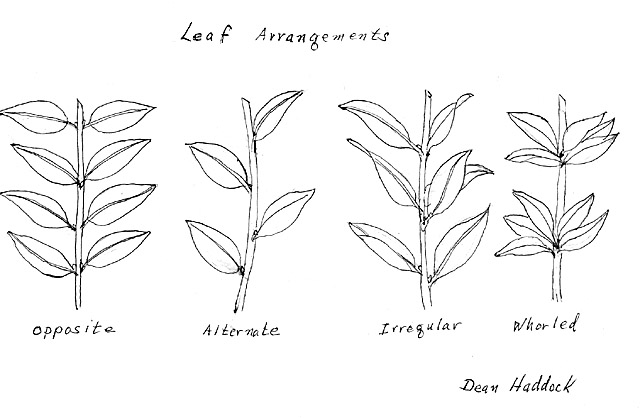 Leaf Arrangements
Opposite
Alternate
Irregular
Whorled
Dean Haddock